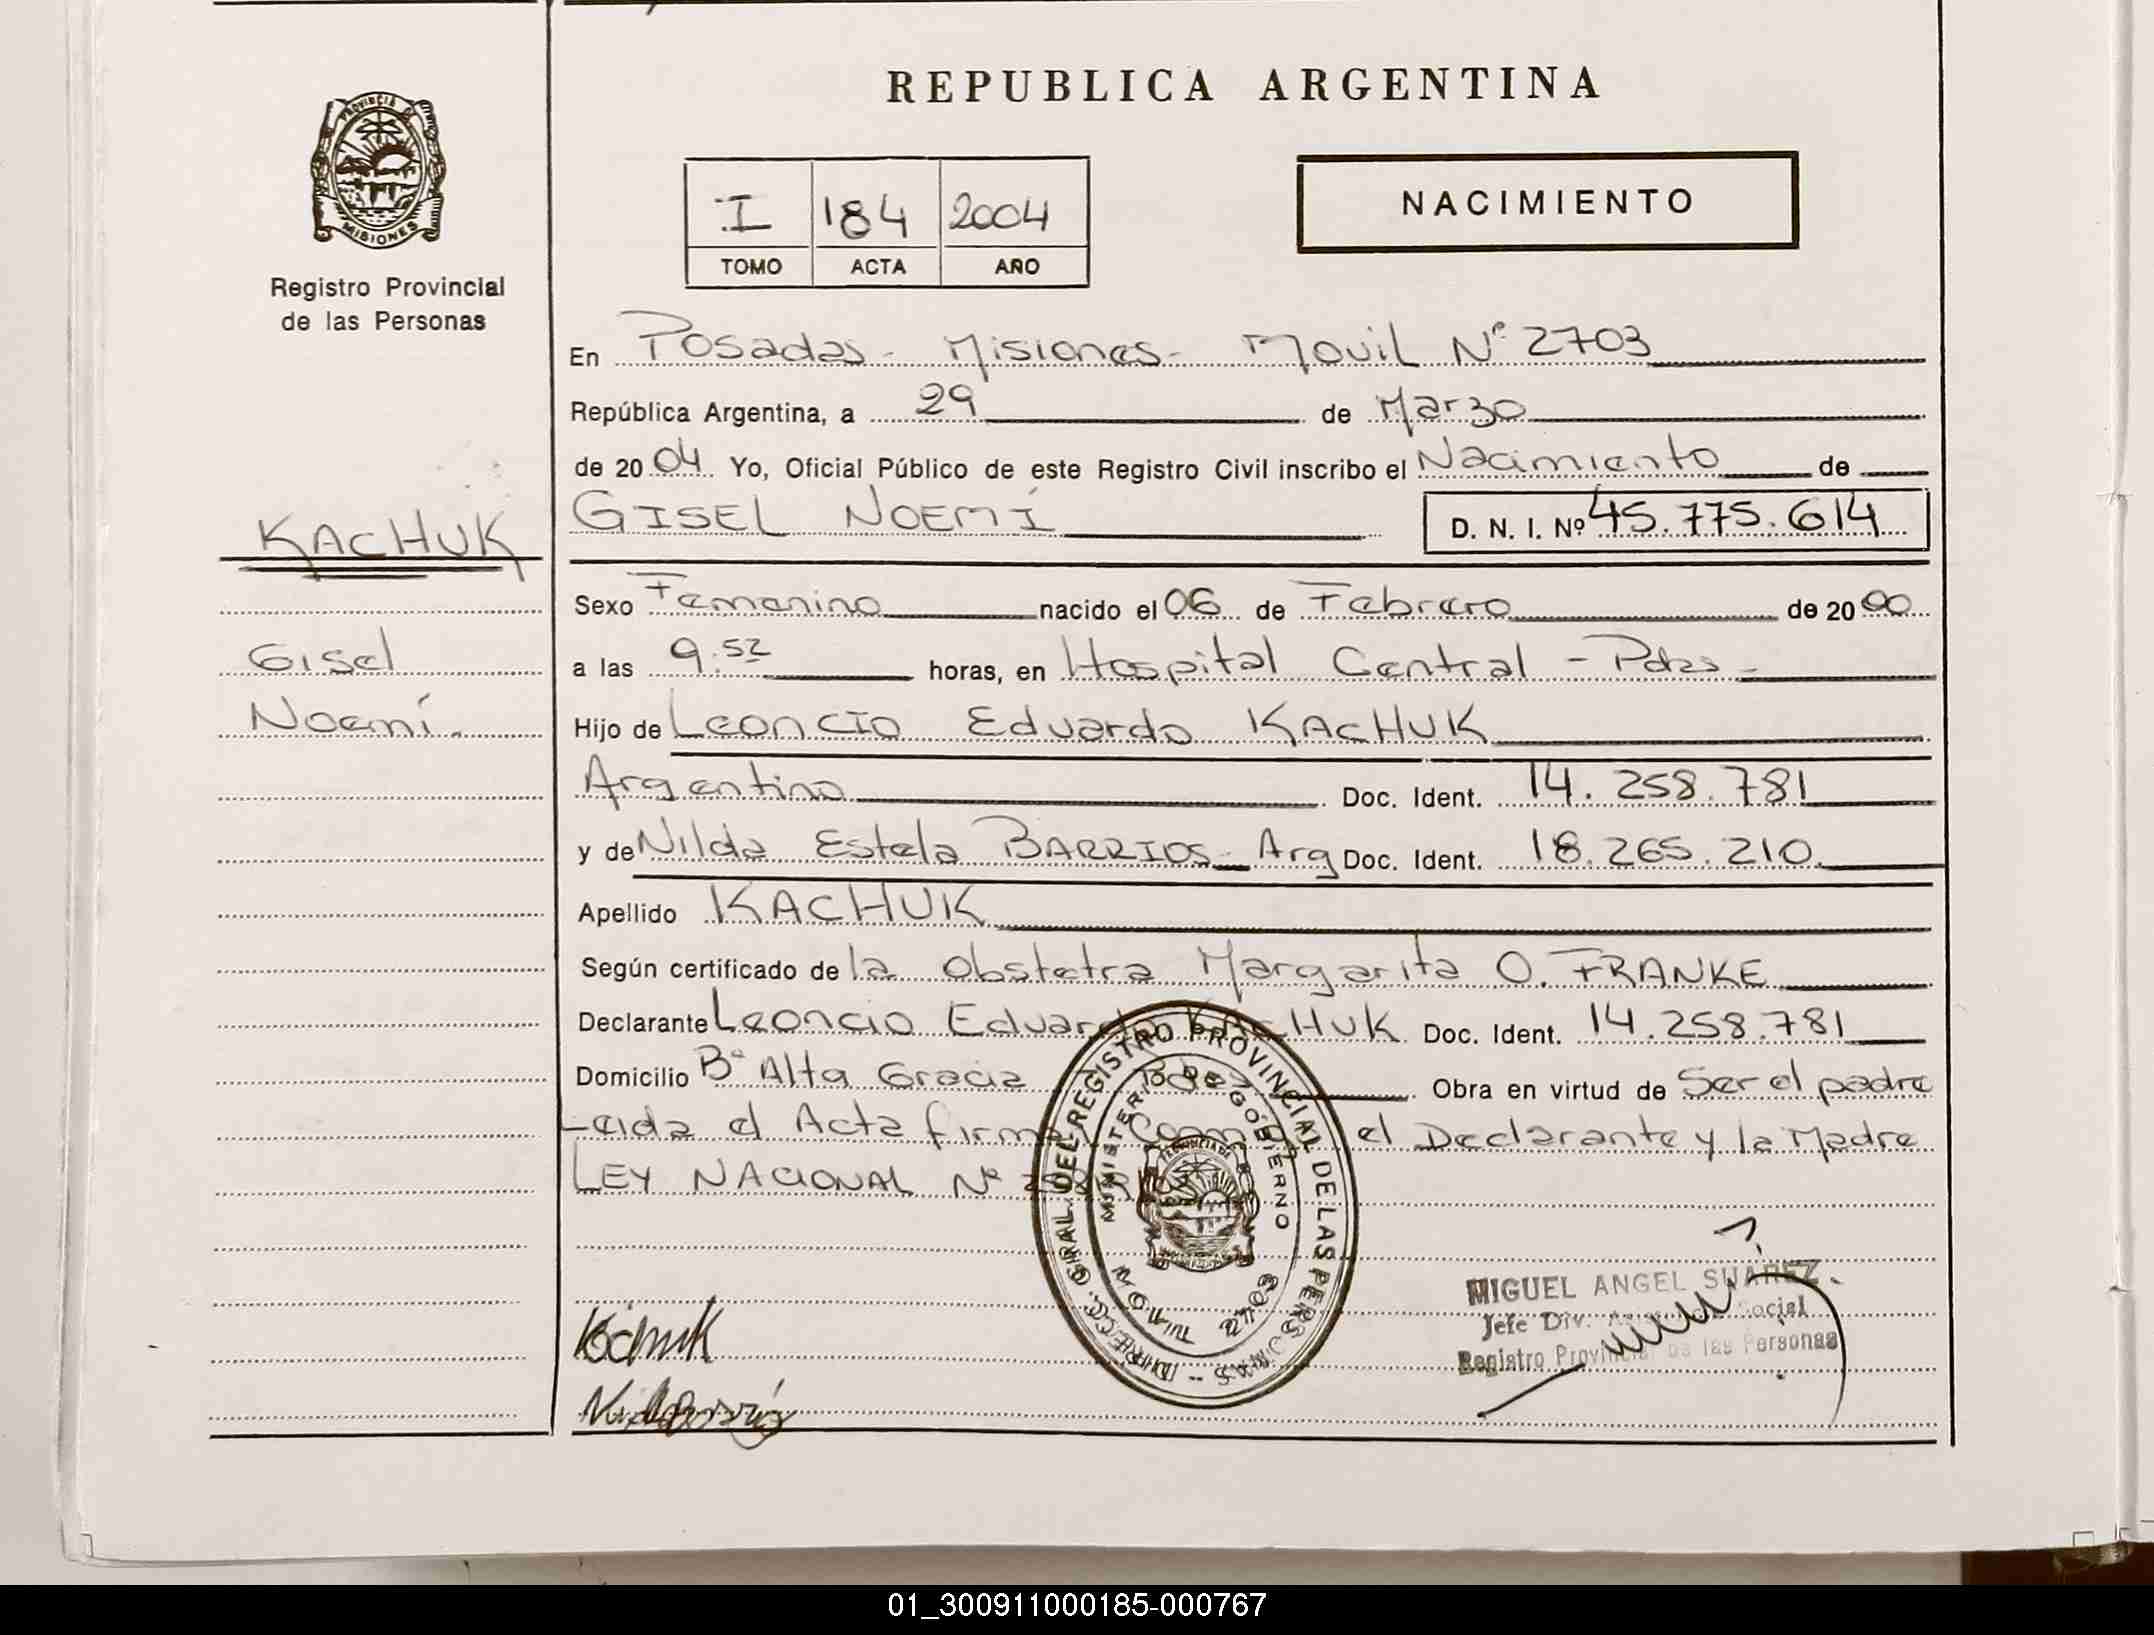 REPUBLICA ARGENTINA
PROVINCIA DE
MISIONES
Registro Provincial
de las Personas
I 184 2004
TOMO ACTA AÑO
NACIMIENTO
En Posadas - Misiones - Movil Nº 2703
República Argentina, a 29 de Marzo
de 2004 Yo, Oficial Público de este Registro Civil inscribo el Nacimiento de
KACHUK
GISEL NOEMÍ D. N. I. Nº 45.775.614
Sexo Femenino nacido el 06 de Febrero de 2000
Gisel
a las 9:52 horas, en Hospital Central - Pdas -
Noemí.
Hijo de Leoncio Eduardo KACHUK
Argentino Doc. Ident. 14.258.781
y de Nilda Estela BARRIOS - Arg Doc. Ident. 18.265.210.
Apellido KACHUK
Según certificado de la Obstetra Margarita O. FRANKE
Declarante Leoncio Eduardo KACHUK Doc. Ident. 14.258.781
Domicilio Bº Alta Gracia Obra en virtud de Ser el padre
Leida el Acta firman el Declarante y la Madre
LEY NACIONAL Nº
DIRECC. GRAL. DEL REGISTRO PROVINCIAL DE LAS PERSONAS
MINISTERIO GOBIERNO
MOVIL 2703
MIGUEL ANGEL SUAREZ
Jefe Div. Social
Registro Provincial de las Personas
Kachuk
Nilda Barrios
01_300911000185-000767